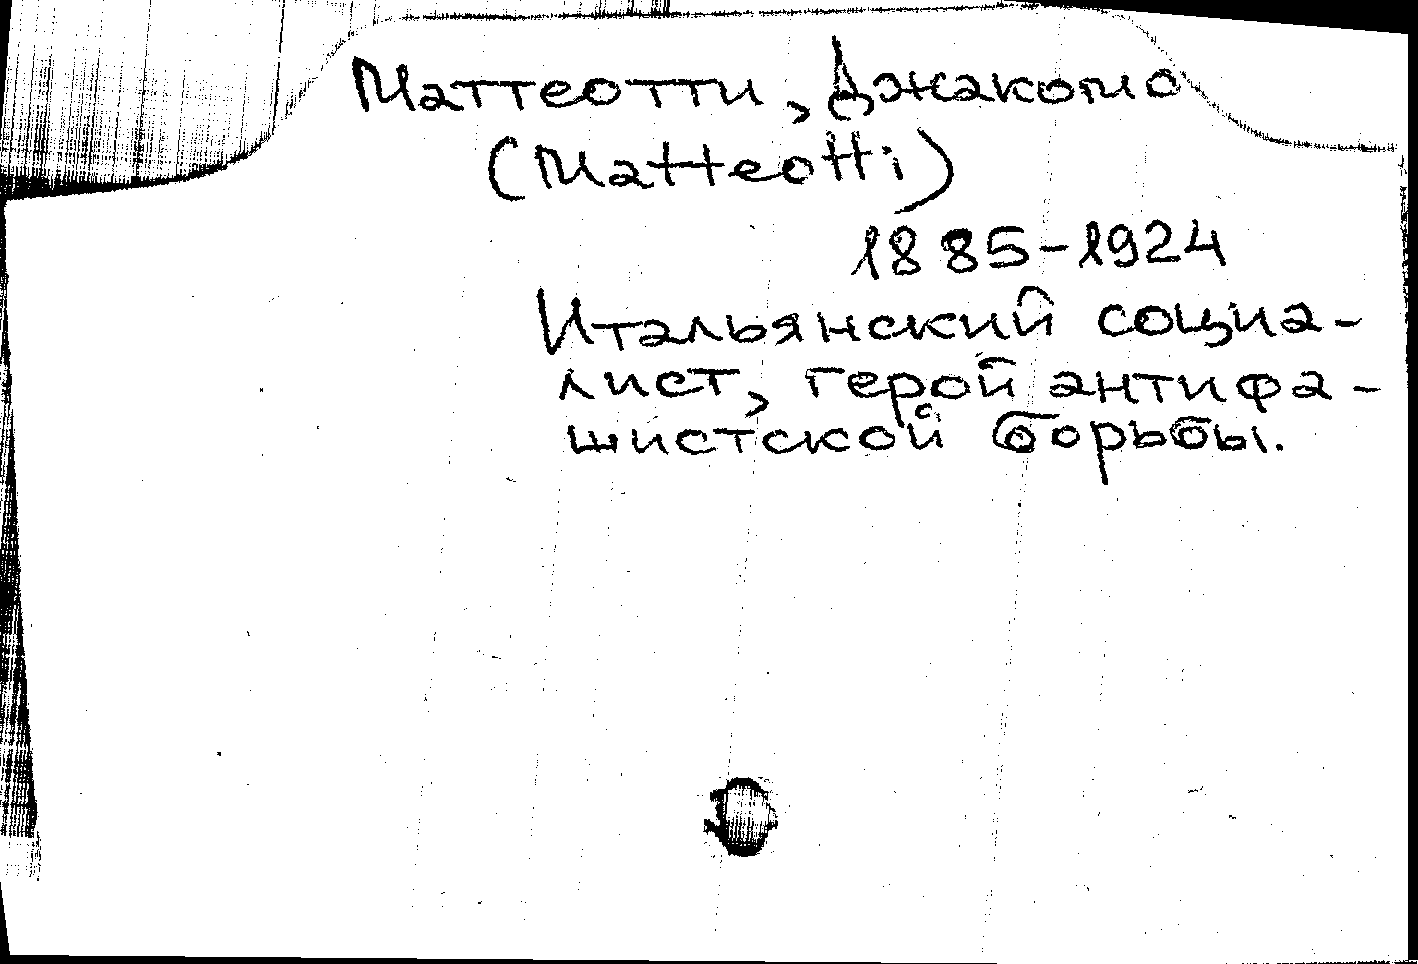 Маттеотти, Джакомо
(Matteotti)
1885-1924
Итальянский социа-
лист, герой антифа-
шистской борьбы.